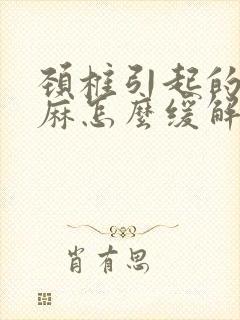 頚椎引起的
麻怎麼缓解
肖有思